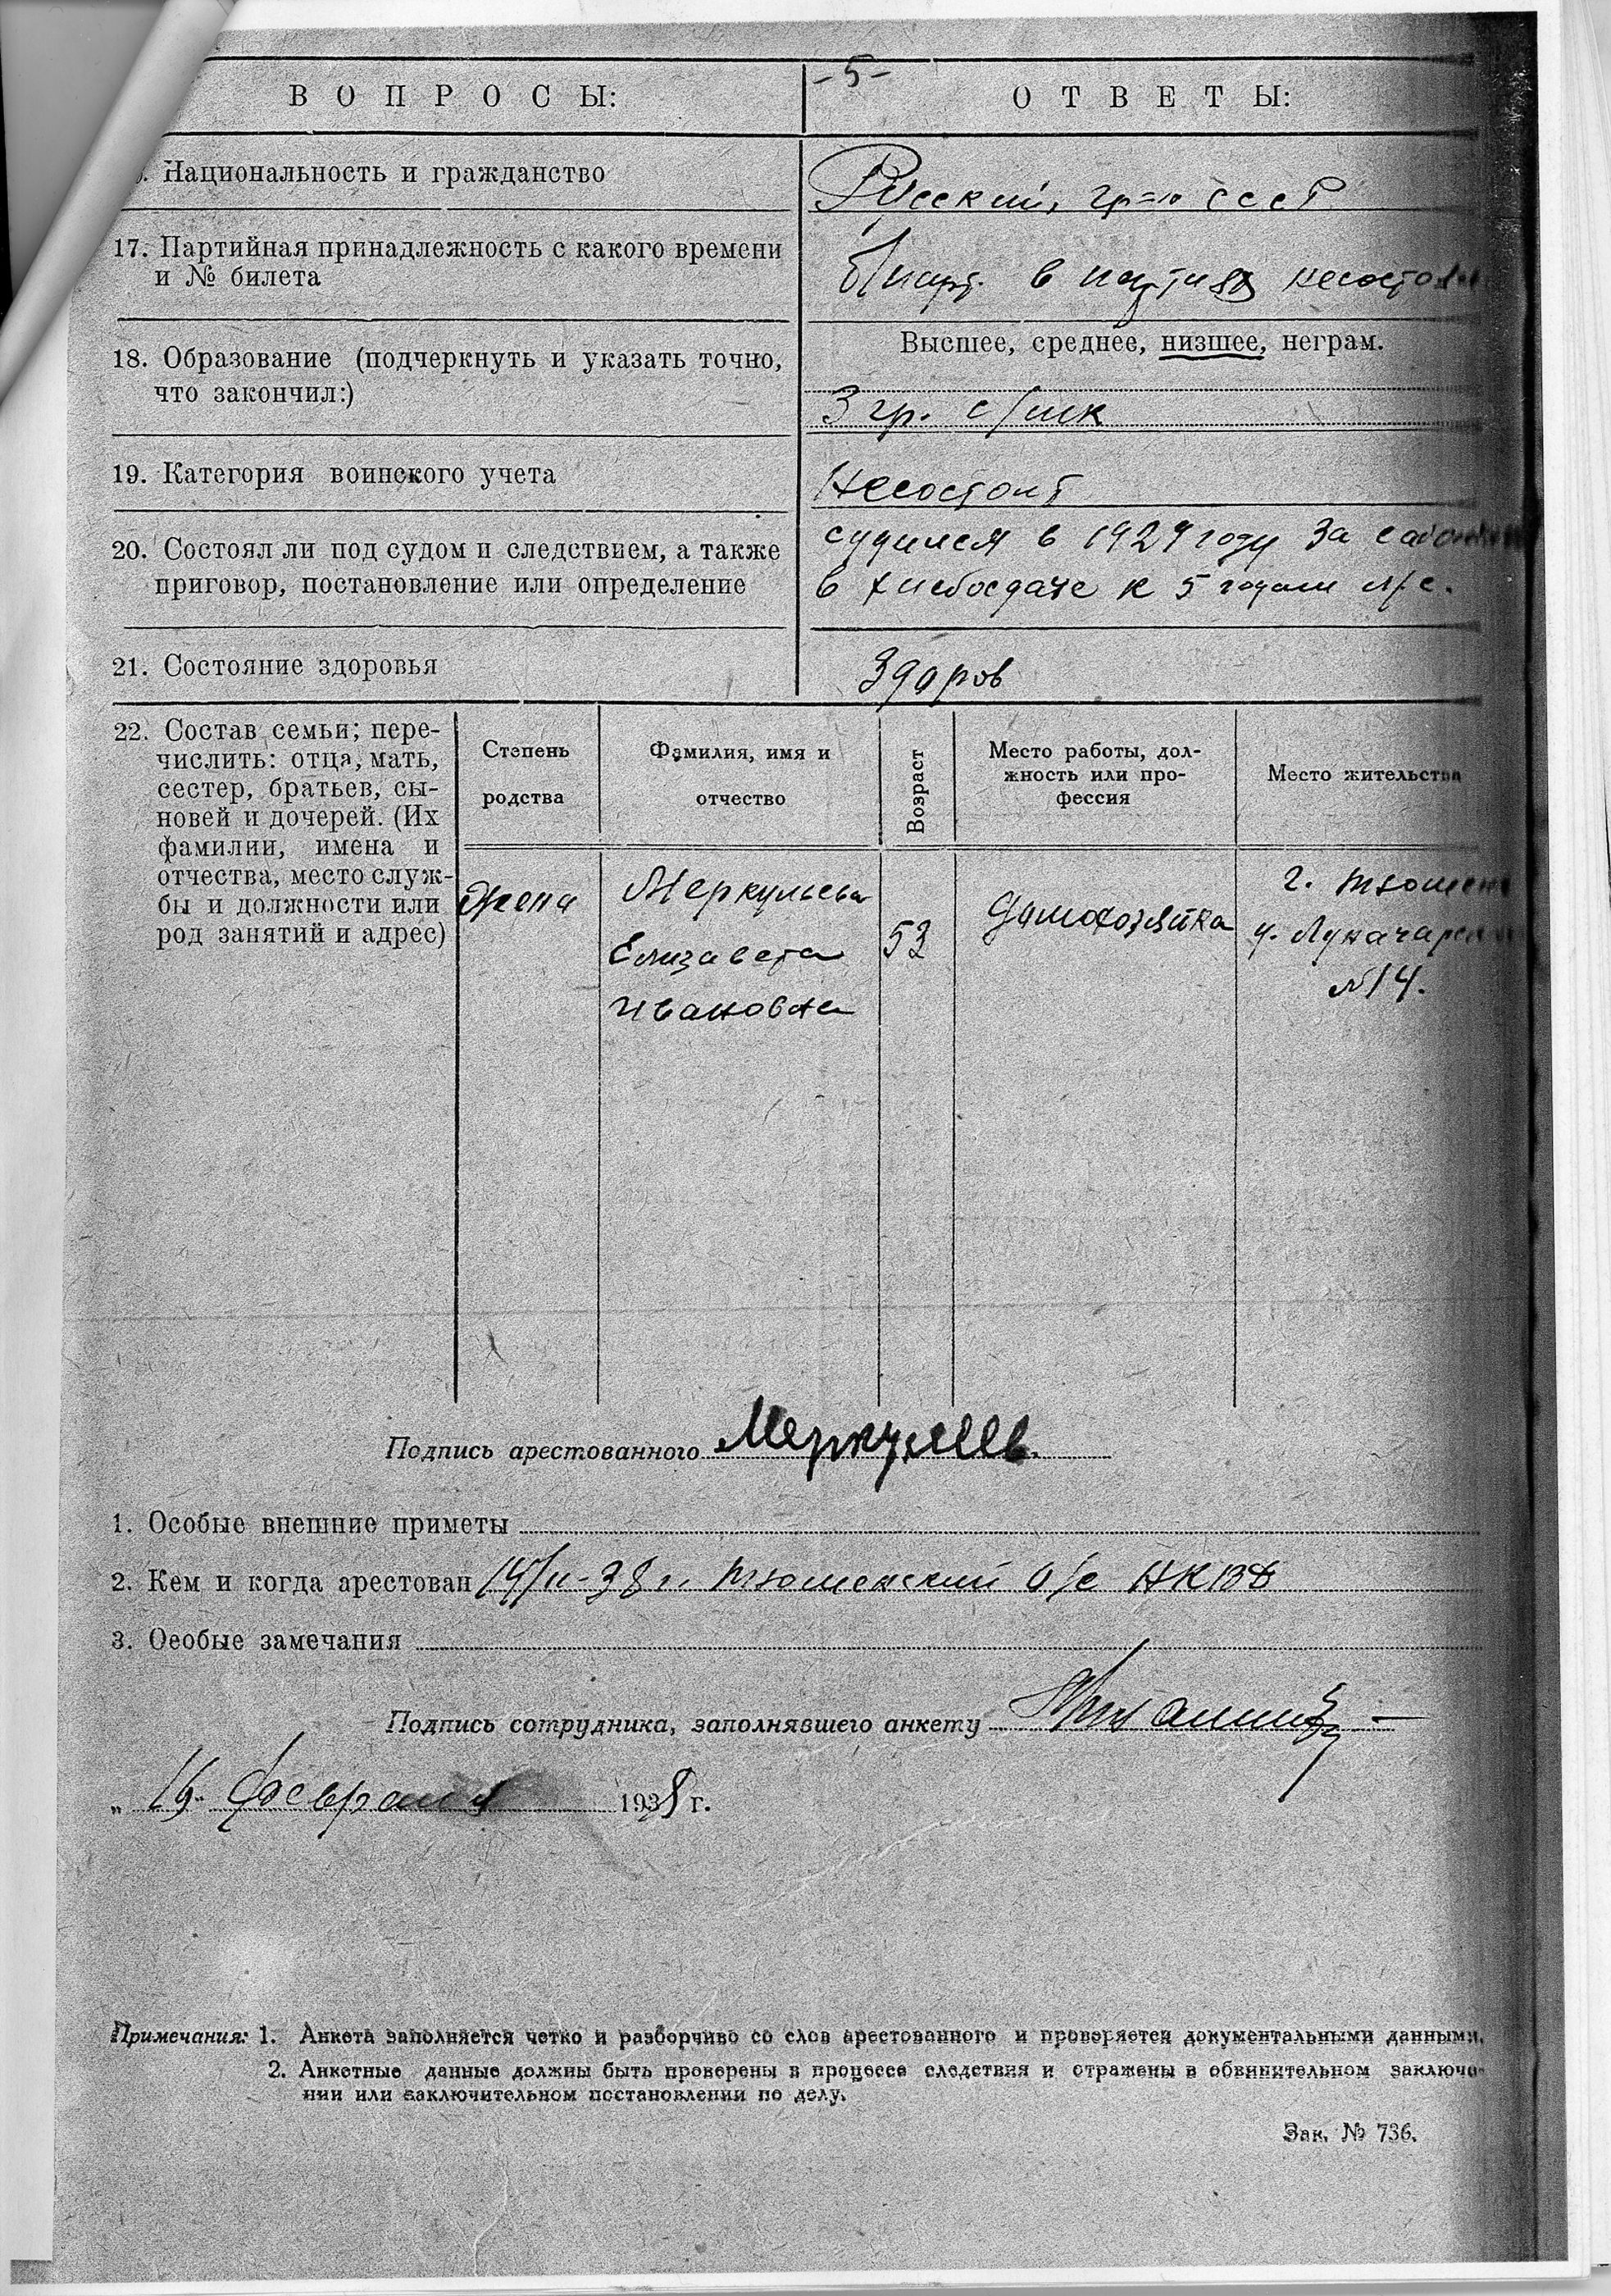 - 5 -
ВОПРОСЫ:
ОТВЕТЫ:
Национальность и гражданство
Русский, гр-н СССР
17. Партийная принадлежность с какого времени
и № билета
б/парт. в партиях несостоял
18. Образование (подчеркнуть и указать точно,
что закончил:)
Высшее, среднее, низшее, неграм.
3 гр. с/шк
19. Категория воинского учета
Несостоит
20. Состоял ли под судом и следствием, а также
приговор, постановление или определение
судился в 1929 году за
в хлебосдаче к 5 годам л/с.
21. Состояние здоровья
Здоров
22. Состав семьи; пере-
числить: отца, мать,
сестер, братьев, сы-
новей и дочерей. (Их
фамилии, имена и
отчества, место служ-
бы и должности или
род занятий и адрес)
Степень
родства
Фамилия, имя и
отчество
Возраст
Место работы, дол-
жность или про-
фессия
Место жительства
Жена
Меркульева
Елизавета
Ивановна
53
Домохозяйка
г. Тюмень
у. Луначарск
№ 14.
Подпись арестованного Меркульев.
1. Особые внешние приметы
2. Кем и когда арестован 14/II-38 г. Тюменский о/с НКВД
3. Особые замечания
Подпись сотрудника, заполнявшего анкету
„ февраля 1938 г.
Примечания: 1. Анкета заполняется четко и разборчиво со слов арестованного и проверяется документальными данными.
2. Анкетные данные должны быть проверены в процессе следствия и отражены в обвинительном заключе-
нии или заключительном постановлении по делу.
Зак. № 736.